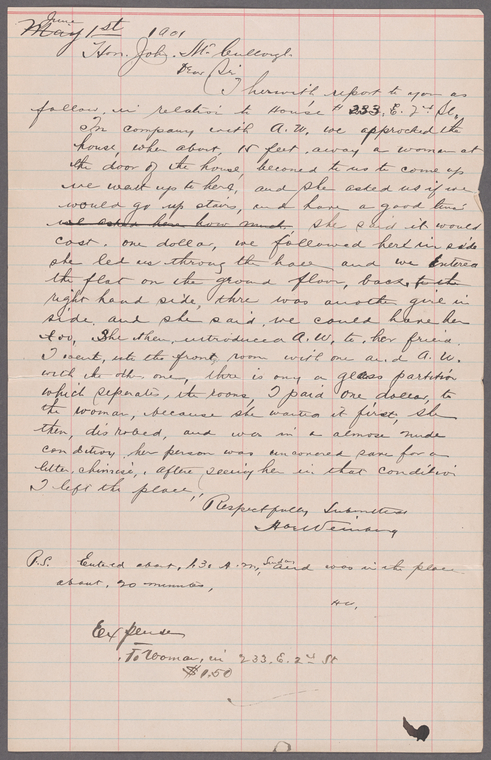 June
May 1st 1901
Hon. John. McCullough.
Dear Sir
I herewith report to you as
follow, in relation to House # 233, E. 2nd St,
In company with A.W. we approched the
house, when about, 15 feet, away, a woman at
the door of the house, beconed to us to come up
we walk up to her, and she asked us if we
would go up stairs, and have a good time
we asked her how much, she said it would
cost. one dolla, we followed her in side
she led us through the hall and we entered
the flat on the ground floor, back, to the
right hand side, thre was anoth girl in
side, and she said, we could have her
too, She then, introduced A.W. to, her friend.
I went, into the front, room with one and A.W.
with the other one, thre is only a glass partition
which seperates, the rooms, I paid one dollar, to
the woman, because she wanted it first, she
then, disrobed, and was in a almose nude
condition, her person was uncovered save for a
little, chimise, after seeing her in that condition
I left the place,
Respectfully Submitted
P.S. Entered about, 1.30 A.M, Sunday and was in the place
about, 20 minutes,
Expense
To Woman, in 233. E. 2nd St
$1.50